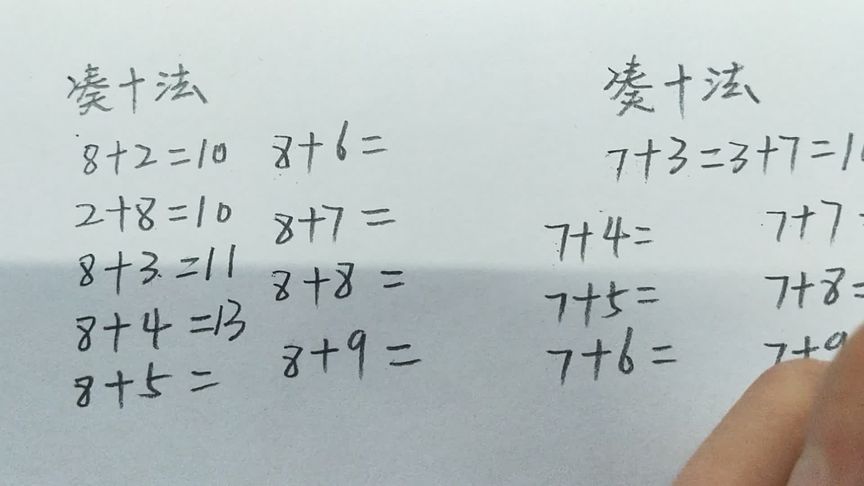 凑十法
8+2=10 8+6=
2+8=10 8+7=
8+3=11 8+8=
8+4=13 8+9=
8+5=
凑十法
7+3=3+7=1
7+4= 7+7
7+5= 7+8=
7+6= 7+9